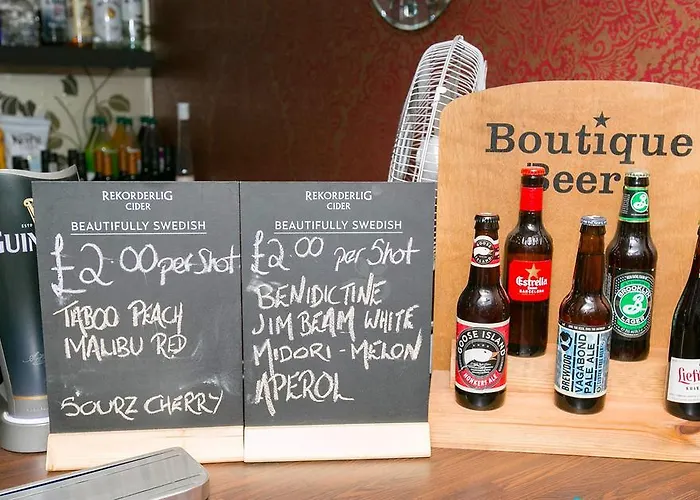 GUIN
REKORDERLIG
CIDER
BEAUTIFULLY SWEDISH
£2.00 per Shot
TABOO PEACH
MALIBU RED
SOURZ CHERRY
REKORDERLIG
CIDER
BEAUTIFULLY SWEDISH
£2.00 per Shot
BENIDICTINE
JIM BEAM WHITE
MIDORI - MELON
APEROL
Boutique
Beer
GOOSE ISLAND
HONKERS ALE
Estrella
BREWDOG
VAGABOND
PALE ALE
BROOKLYN
LAGER
Lief